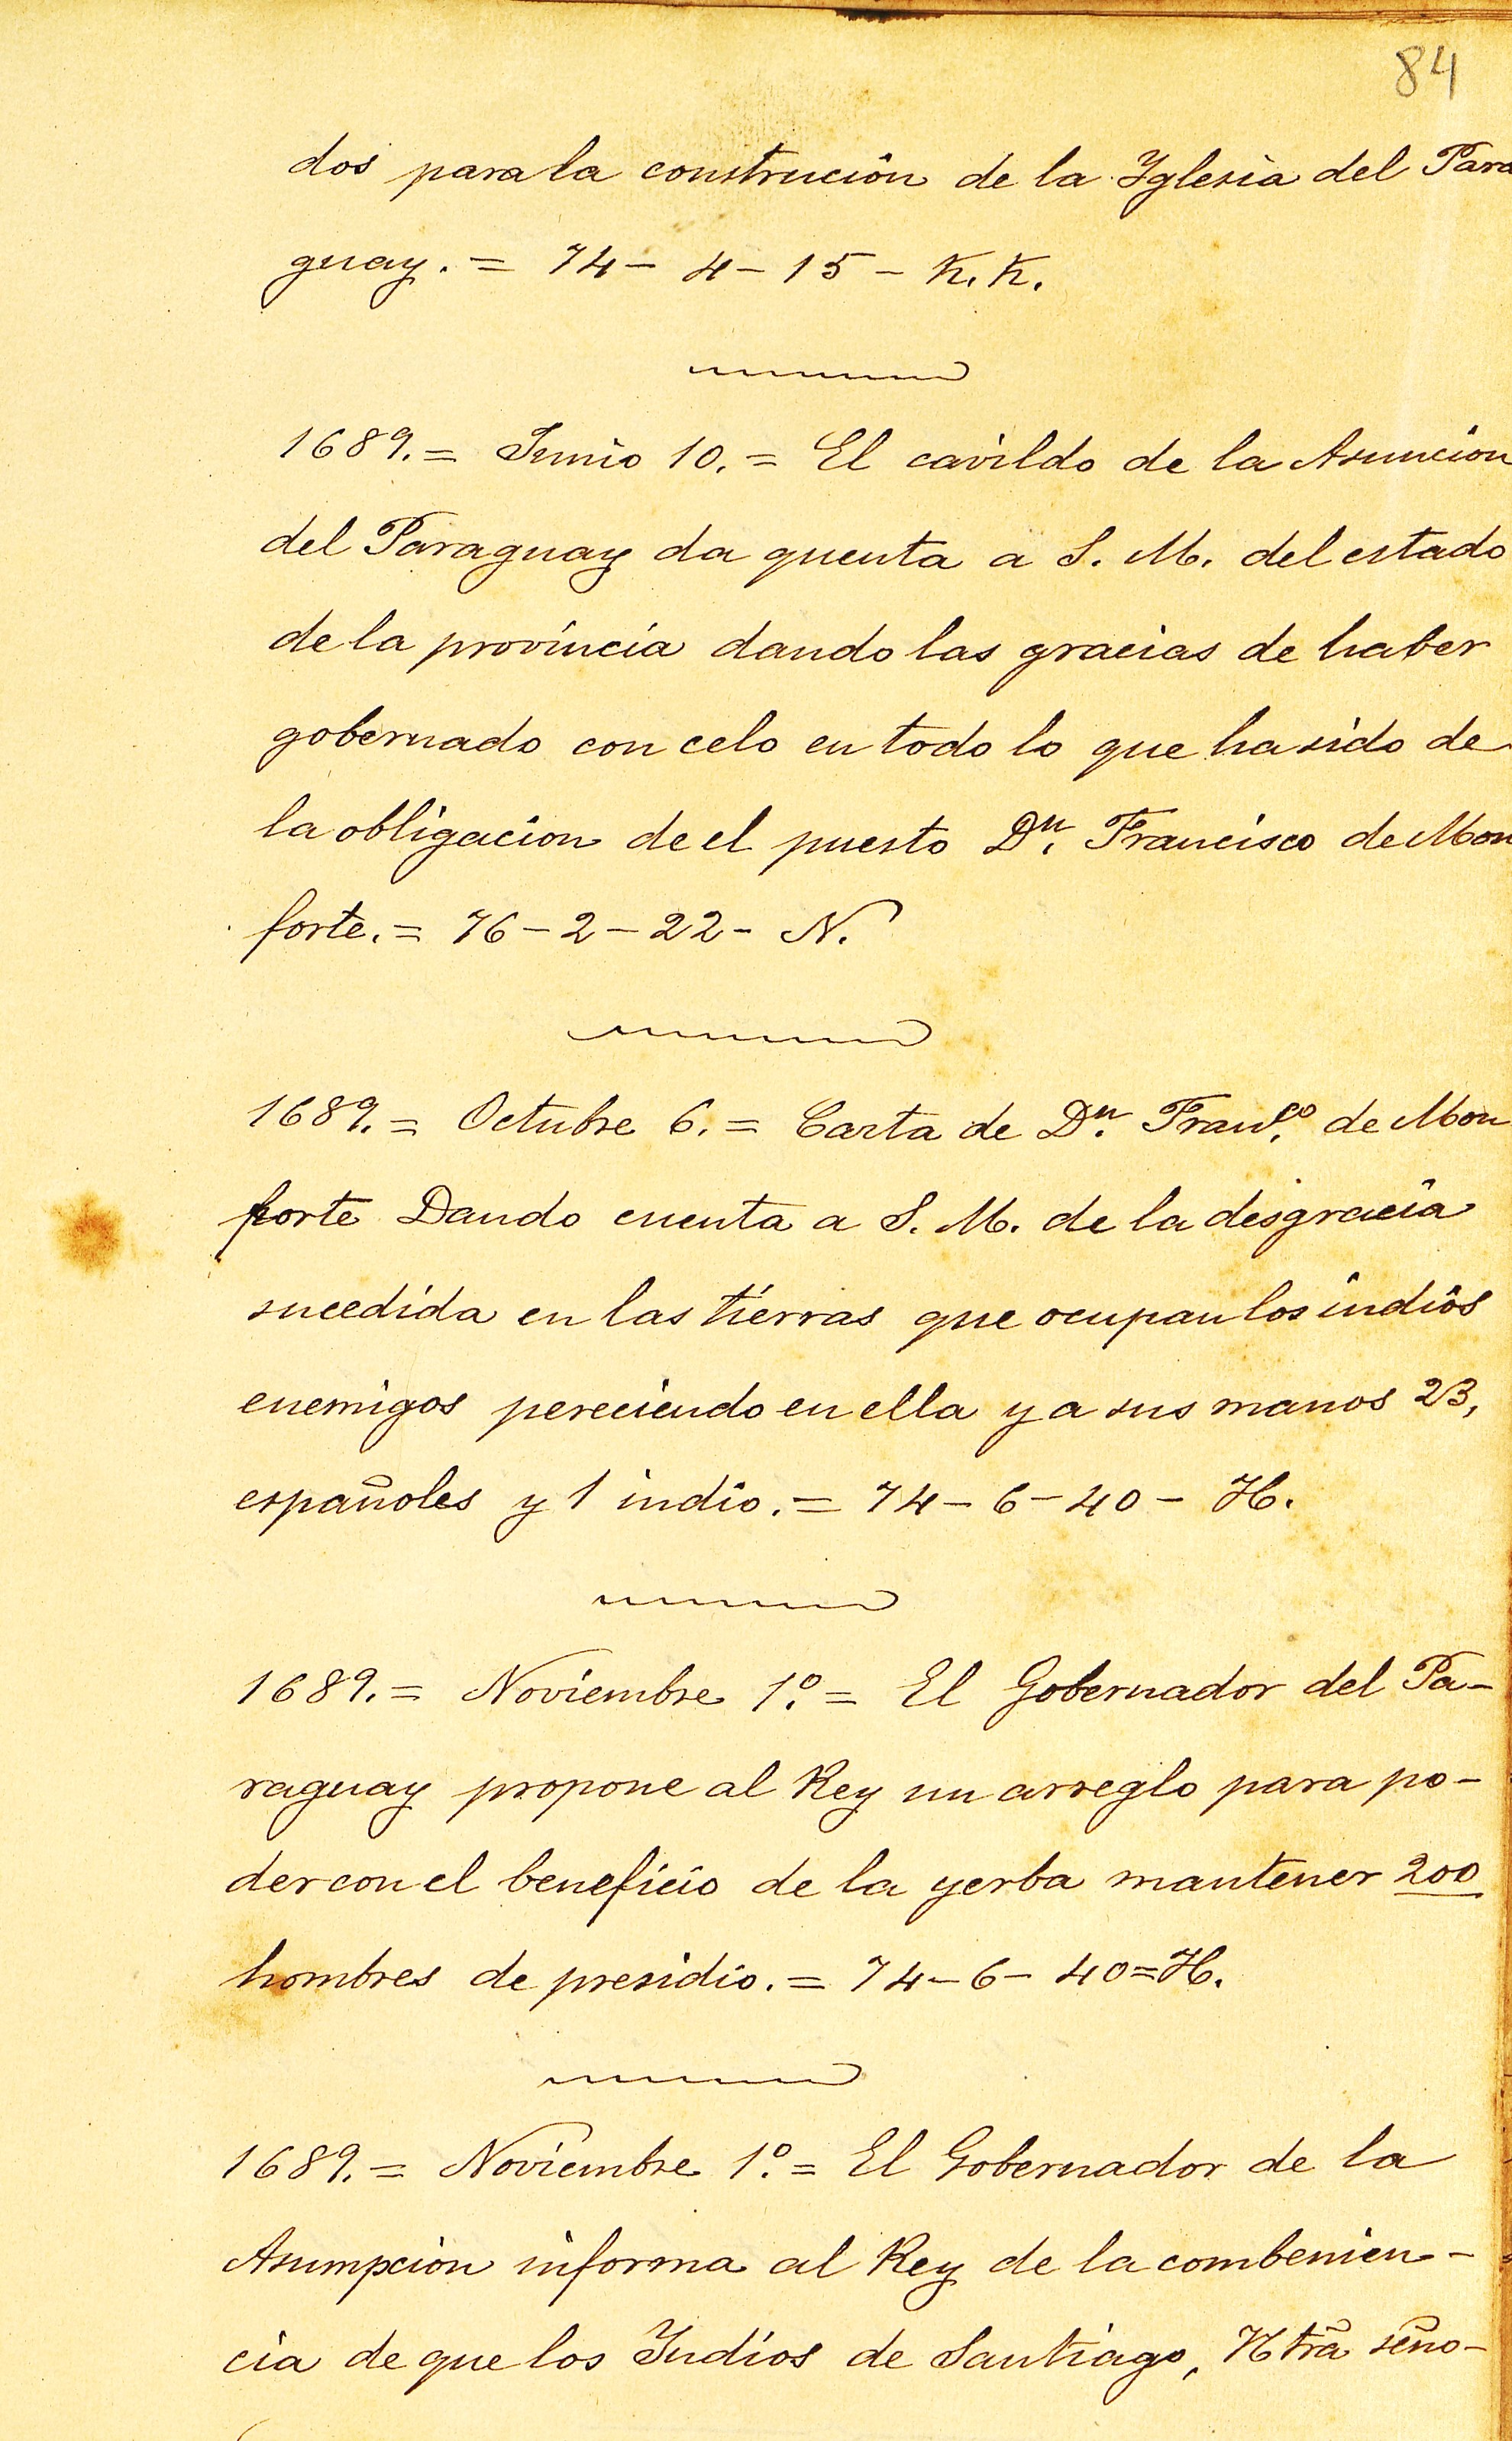 84
dos para la construción de la Yglesia del Para
guay. = 74 - 4 - 15 - K. K.
1689. = Junio 10. = El cavildo de la Asuncion
del Paraguay da quenta a S. M. del estado
de la provincia dando las gracias de haber
gobernado con celo en todo lo que ha sido de
la obligacion de el puesto Dn. Francisco de Mon
forte. = 76 - 2 - 22 - N.
1689. = Octubre 6. = Carta de Dn. Franco. de Mon
forte Dando cuenta a S. M. de la desgracia
sucedida en las tierras que ocupan los indios
enemigos pereciendo en ella y a sus manos 23,
españoles y 1 indio. = 74 - 6 - 40 - H.
1689. = Noviembre 1º. = El Gobernador del Pa-
raguay propone al Rey un arreglo para po-
der con el beneficio de la yerba mantener 200
hombres de presidio. = 74 - 6 - 40 = H.
1689. = Noviembre 1º. = El Gobernador de la
Asumpcion informa al Rey de la combenien-
cia de que los Indios de Santiago, Ntrã sẽno-